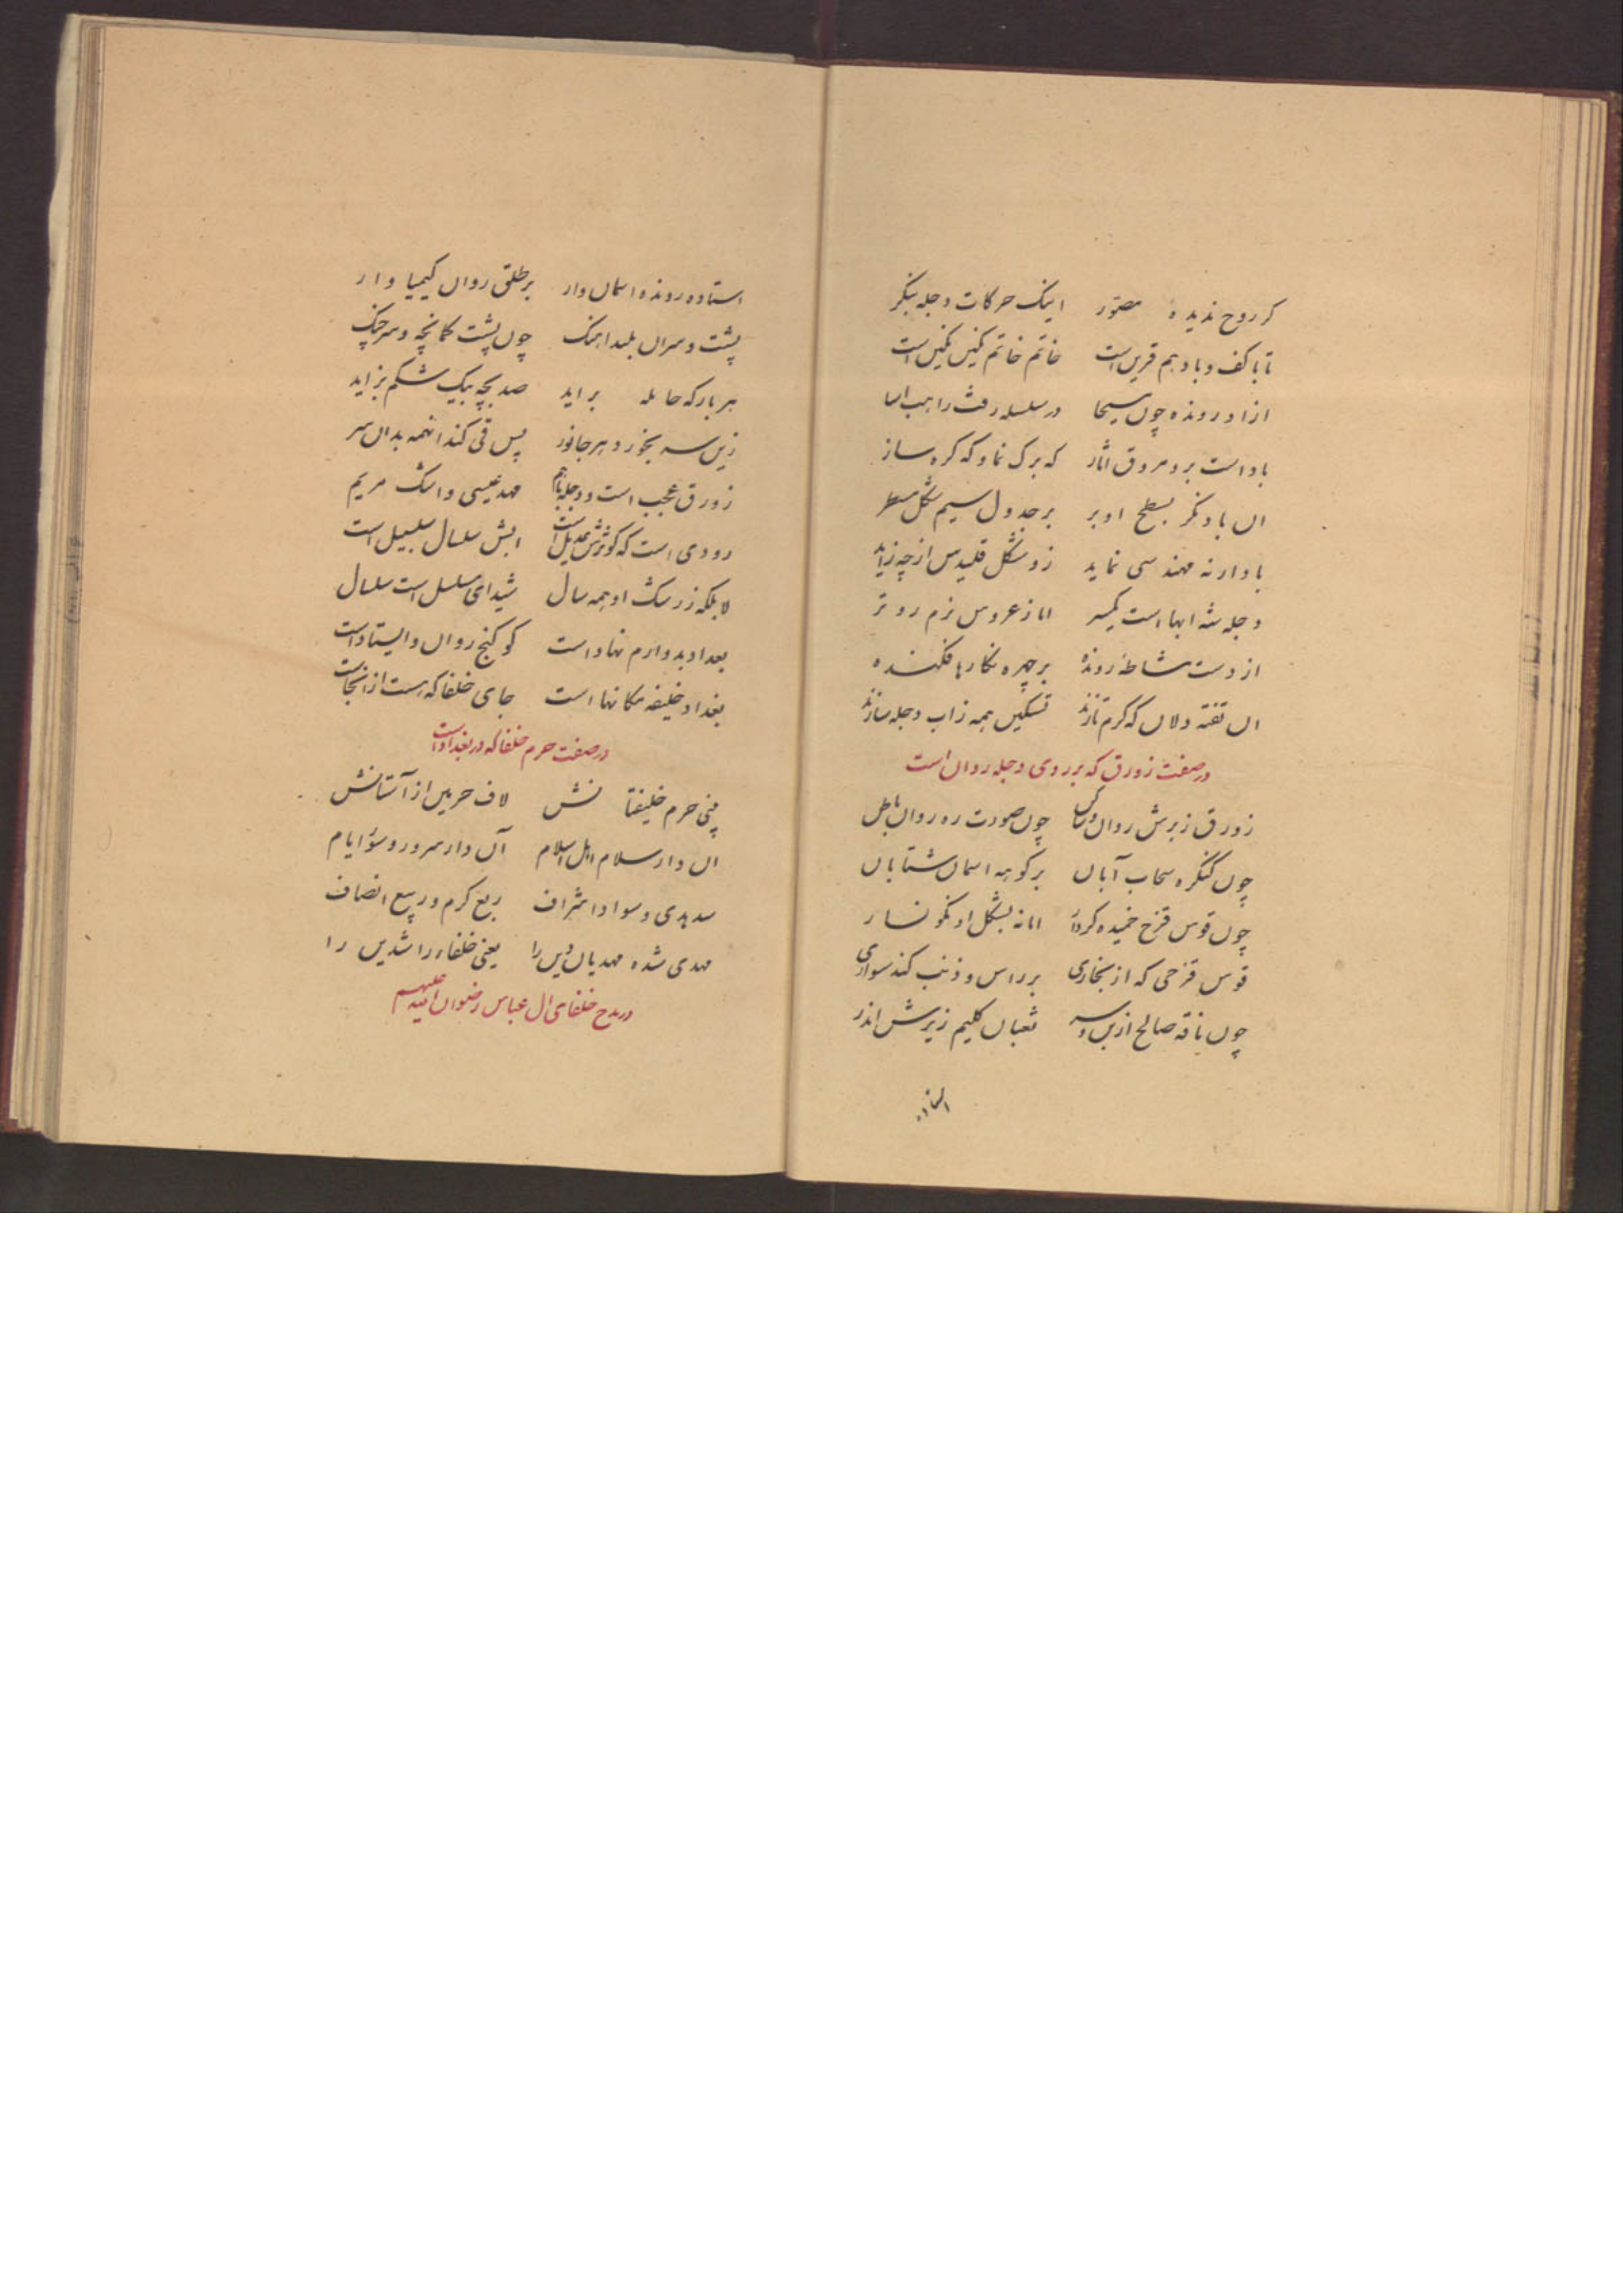 کر روح ندیدهٔ مصوّر اینک حرکات دجله بنگر
تا با کف و باد هم قرین است خاتم خاتم نگین نگین است
ازاد رونده چون مسیحا در سلسله رفته راهب اسا
باد است برو مروق اثار که برک نما و که کره ساز
ان باد نگر بسطح او بر بر جدول سیم شکل مسطر
باد ارنه مهندسی نماید زو شکل قلیدس از چه زاید
دجله شه ابها است یکسر اما ز عروس نرم رو تر
از دست مشاطهٔ رونده بر چهره نگارها فکنده
ان تفته دلان که کرم تازند تسکین همه ز اب دجله سازند
در صفت زورق که بر روی دجله روان است
زورق زبرش روان چون صورت ره روان باطل
چون کنگره سحاب آبان بر کوهه اسمان شتابان
چون قوس قزح خمیده کردار اما نه بشکل او نگونسار
قوس قزحی که از بخاری بر راس و ذنب کند سواری
چون ناقه صالح از بس و سر ثعبان کلیم زیرش اندر
استاده
استاده رونده اسمان وار بر طلق روان کیمیا وار
پشت و سران بلند اهنک چون پشت کمانچه و سر چنک
هر بار که حامله براید صد بچه بیک شکم بزاید
زین سر بخورد هر جانور پس قی کند انهمه بدان سر
زورق عجب است و دجله باهم مهد عیسی و اشک مریم
رودی است که کوثرش عدیل است ابش سلسال سلسبیل است
لا بلکه ز رشک او همه سال شیدای مسلسل است سلسال
بغداد بدو ارم نهاد است کو کنج روان و ایستاد است
بغداد خلیفه مکانها است جای خلفا که هست از انجاست
در صفت حرم خلفا که در بغداد است
بینی حرم خلیفتانش لاف حرمین از آستانش
ان دار سلام اهل اسلام آن دار سرور و سؤر ایام
سد هدی و سواد اشراف ربع کرم و ربیع انصاف
مهدی شده مهدیان دین را یعنی خلفاء راشدین را
در مدح خلفای ال عباس رضوان الله علیهم